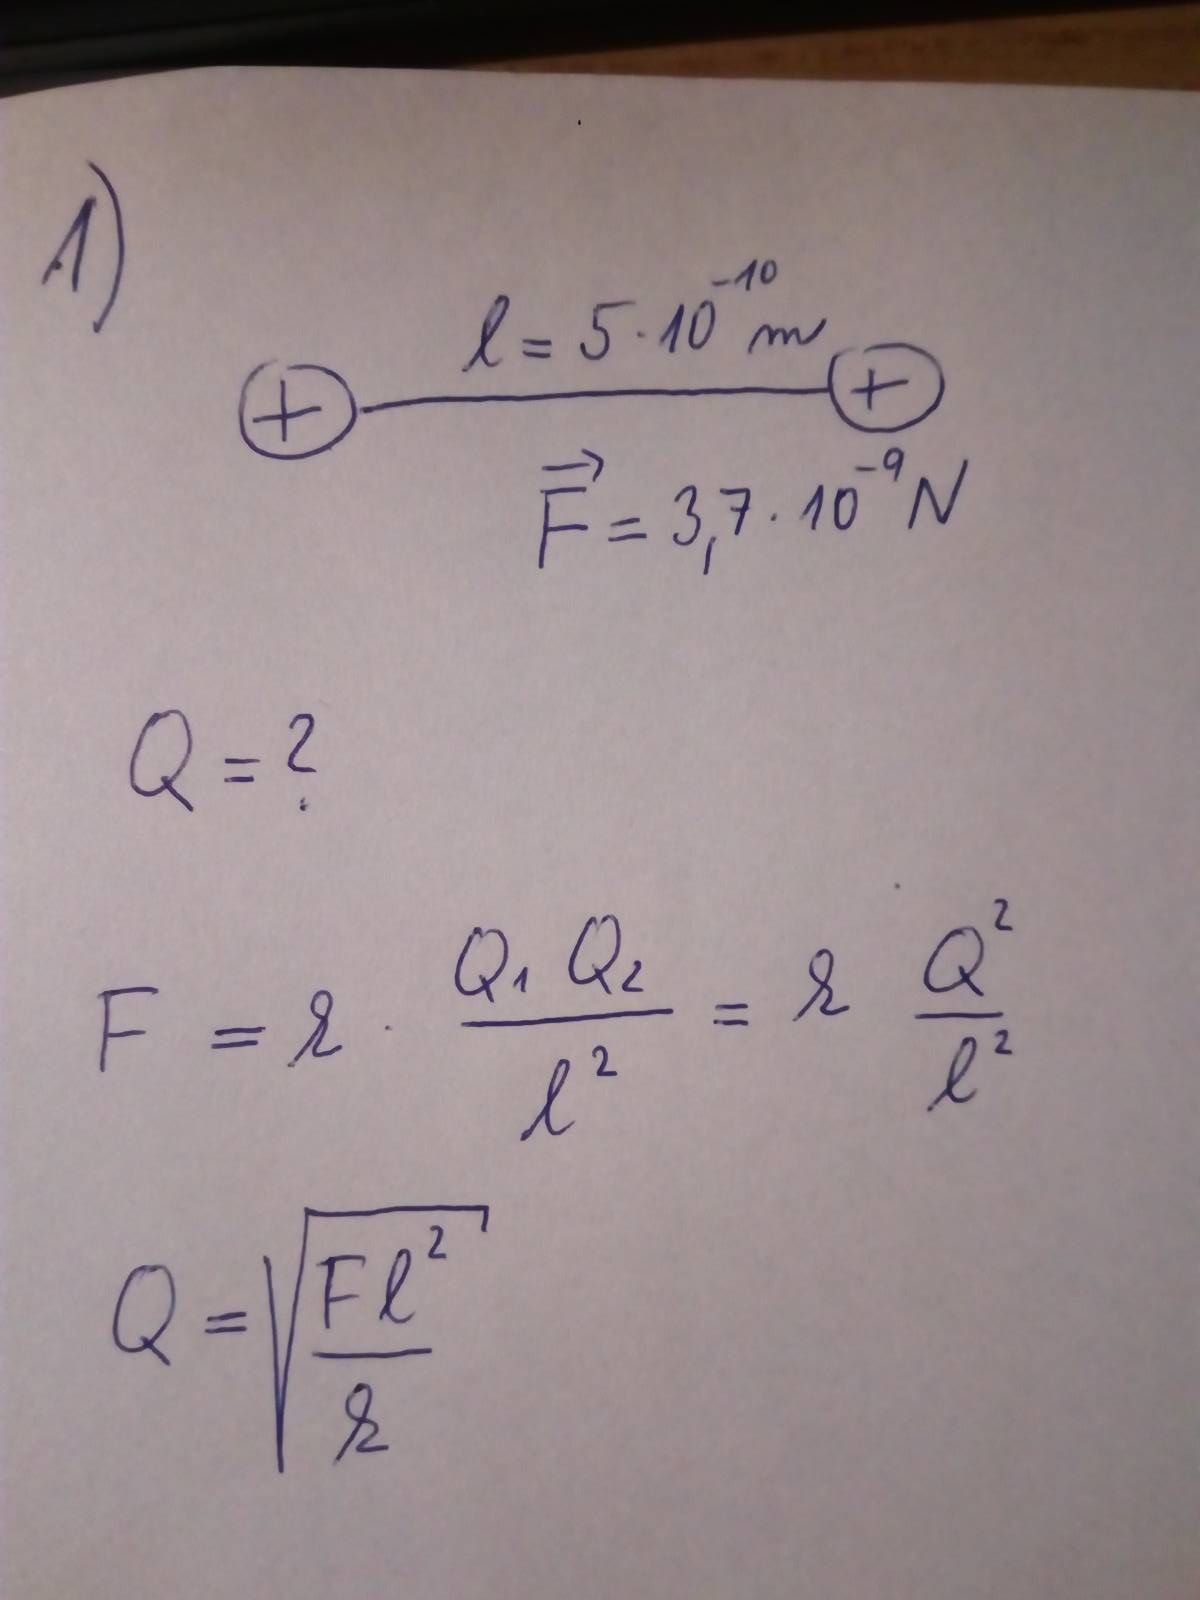 1)
l = 5·10⁻¹⁰ m
+ +
F⃗ = 3,7·10⁻⁹ N
Q = ?
F = k · Q₁ Q₂ / l² = k Q² / l²
Q = √(F l² / k)